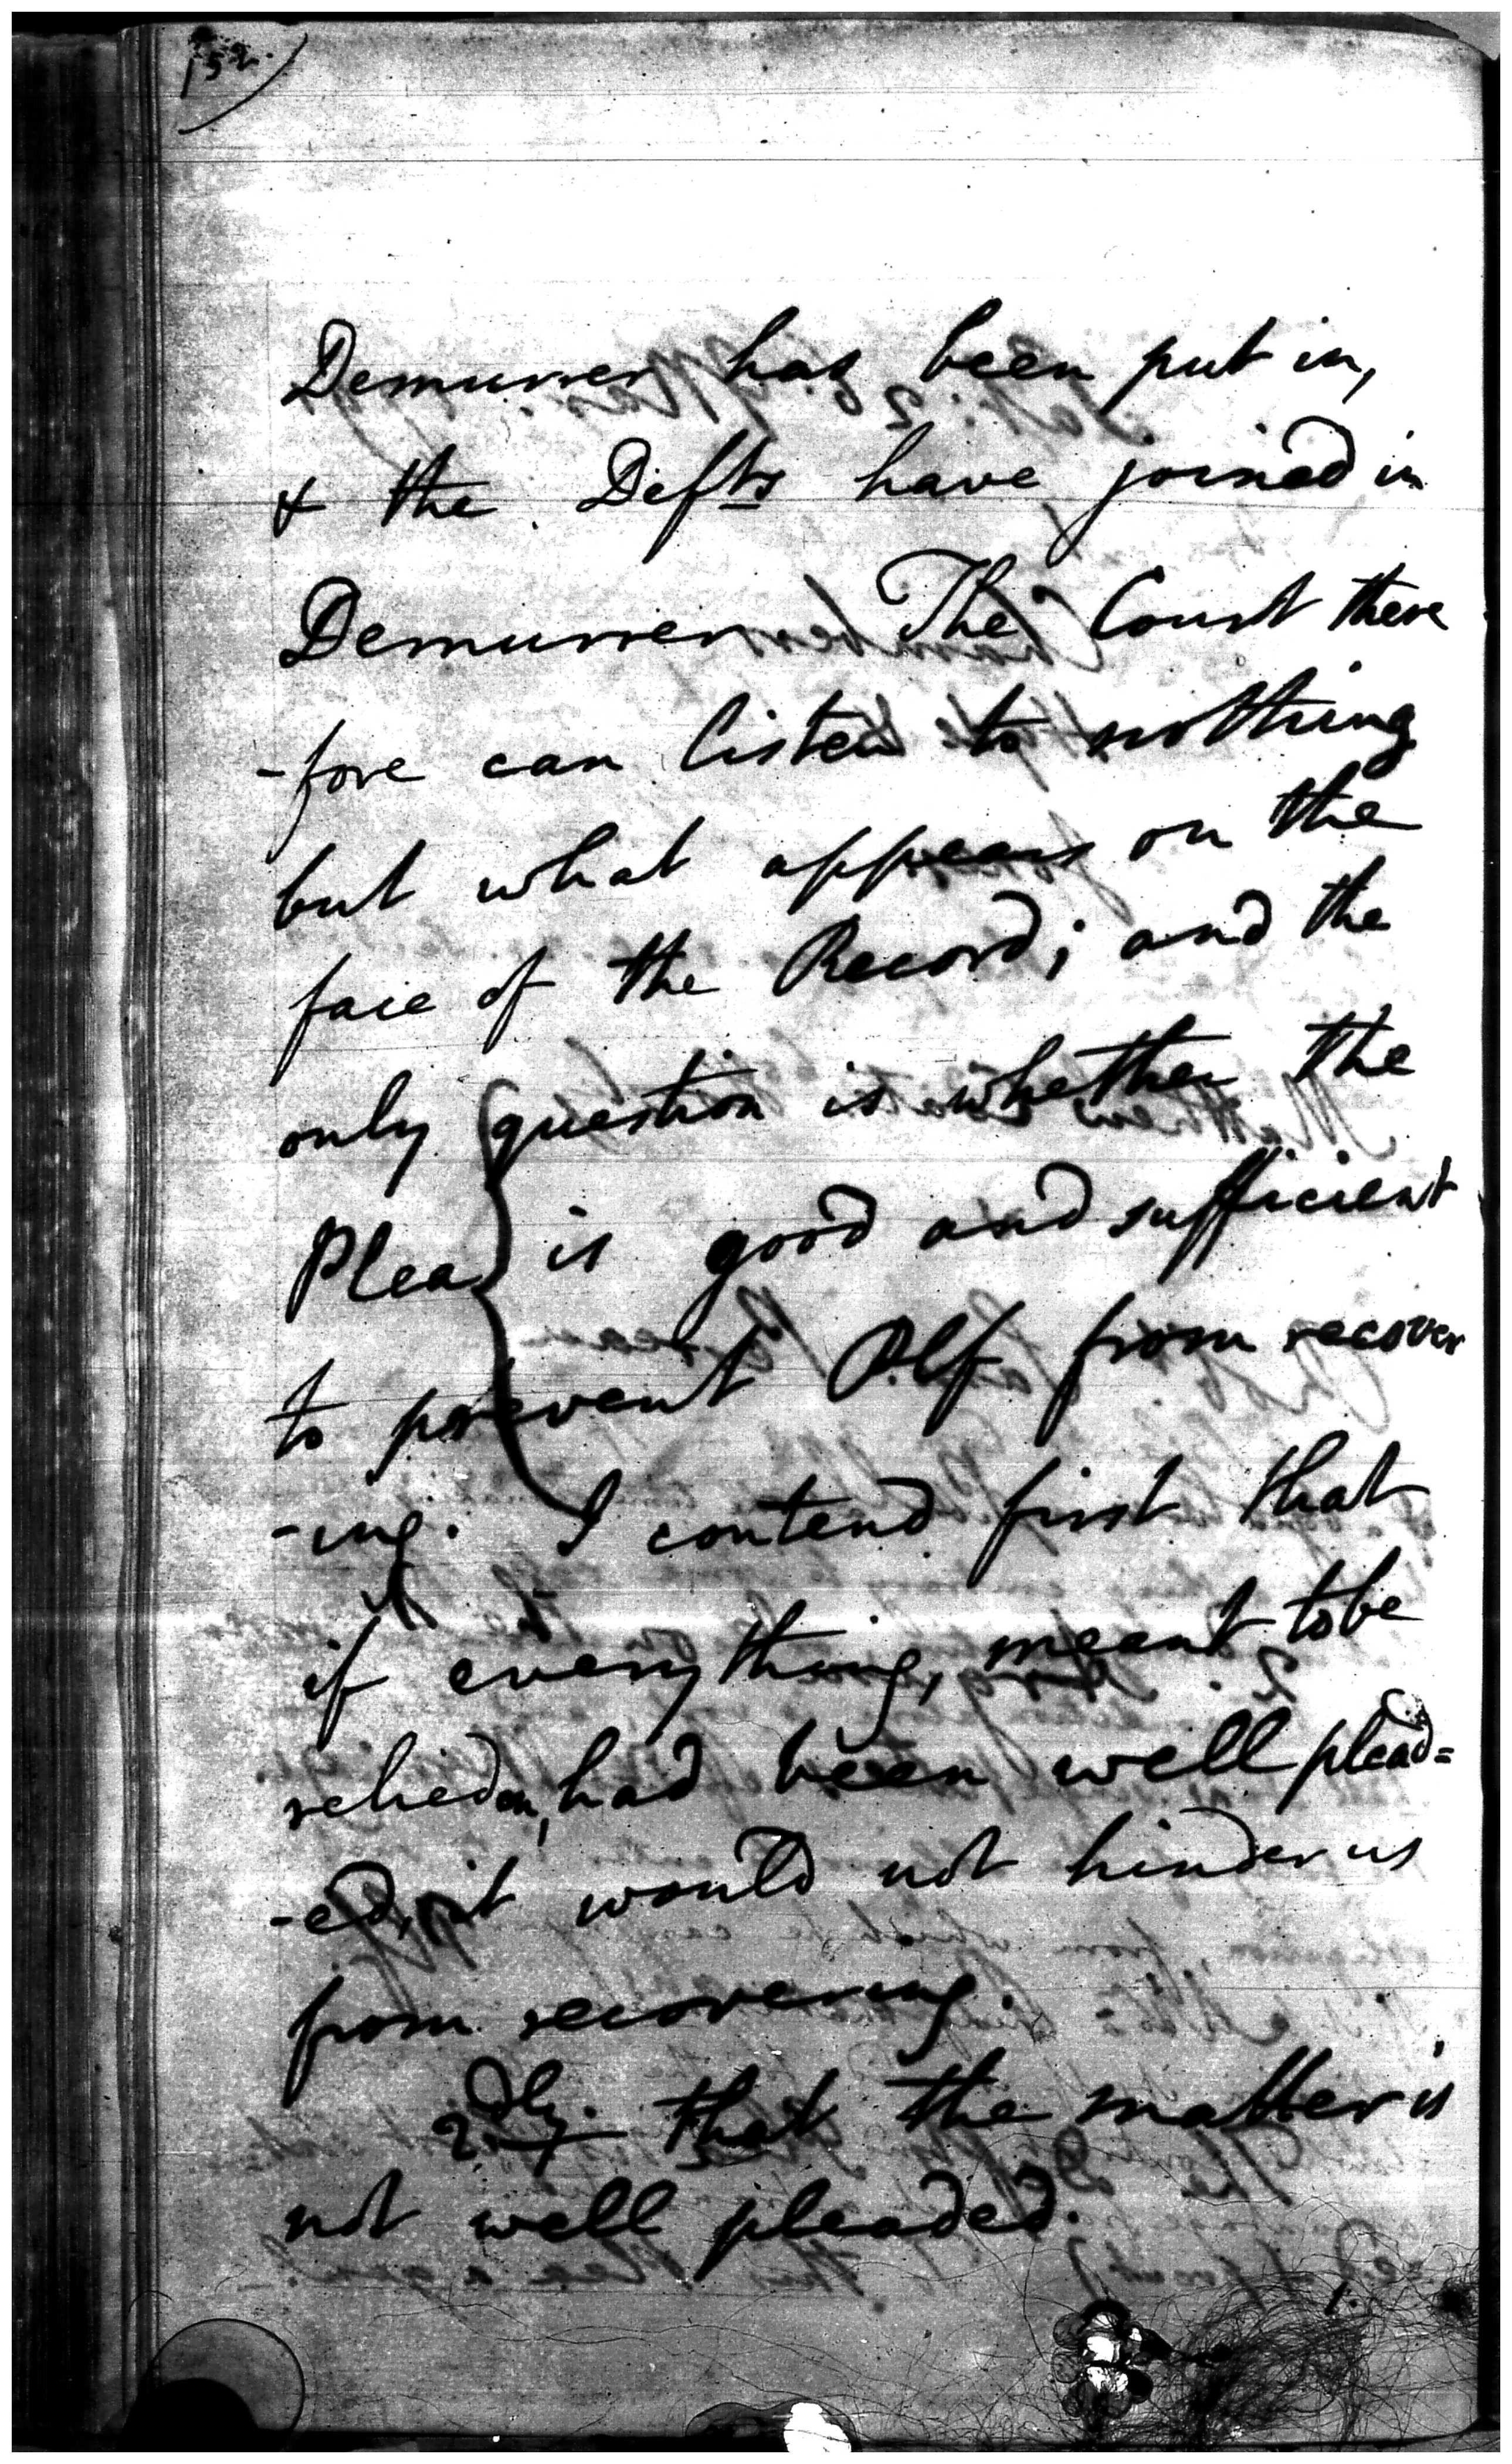 152.
Demurrer has been put in,
& the Defts have joined in
Demurrer The Court there
-fore can listen to nothing
but what appears on the
face of the Record; and the
only question is whether the
Plea is good and sufficient
to prevent Plf from recover
-ing. I contend first that
if everything, meant to be
relied on, had been well plead=
-ed, it would not hinder us
from recovering.
2dly. that the matter is
not well pleaded.